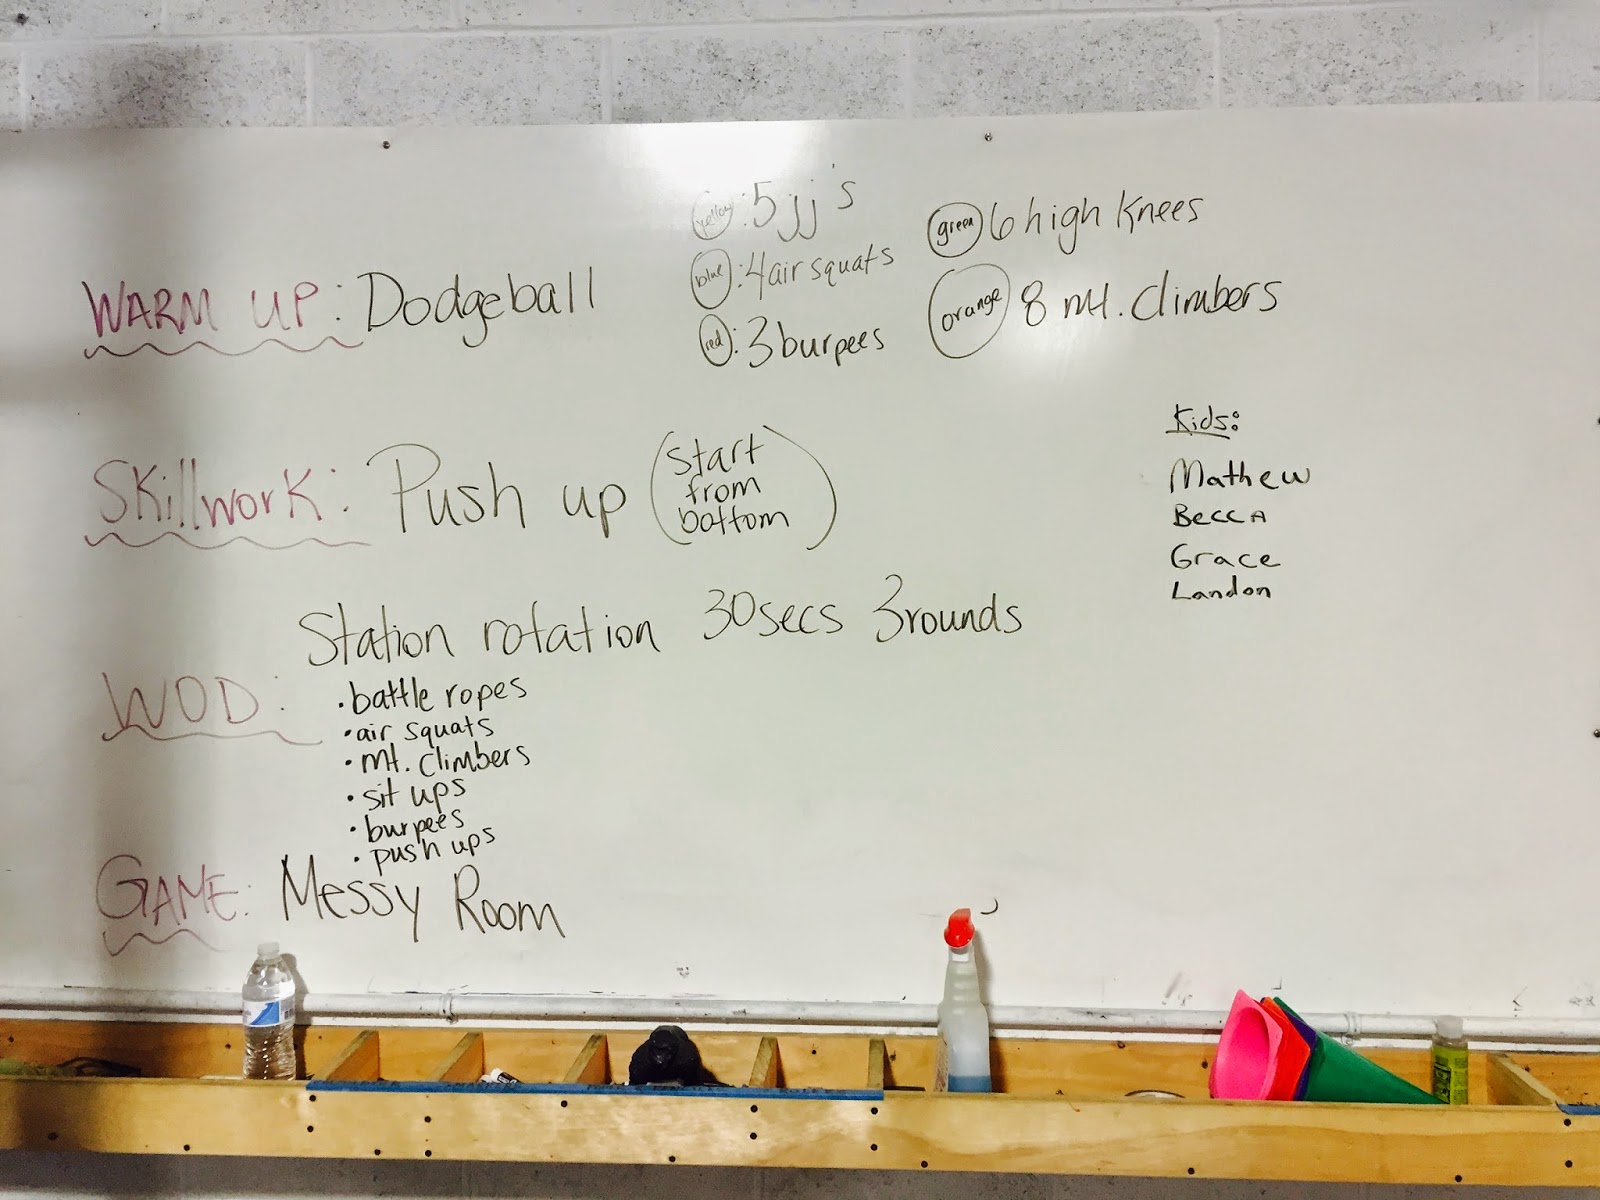 WARM UP: Dodgeball
yellow: 5 jj's
blue: 4 air squats
red: 3 burpees
green 6 high knees
orange 8 mt. climbers
Skillwork: Push up (start
from
bottom)
Kids:
Mathew
Becca
Grace
Landon
WOD: Station rotation 30secs 3rounds
• battle ropes
• air squats
• mt. climbers
• sit ups
• burpees
• push ups
GAME: Messy Room